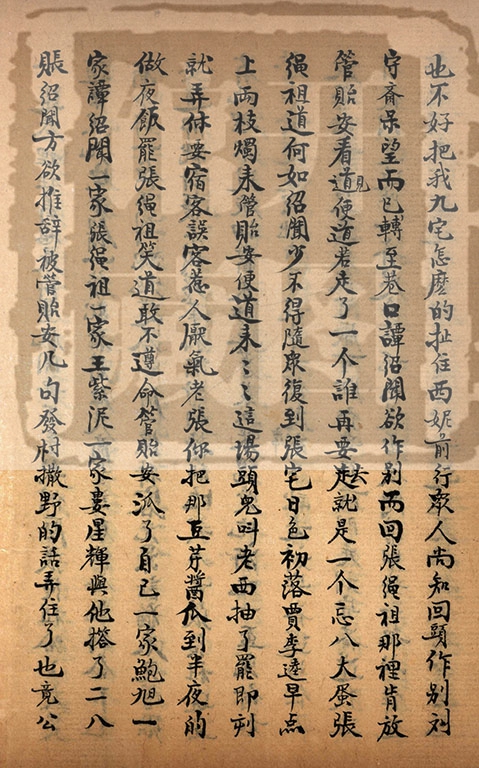 也不好把我九宅怎麼的扯住西妮前行衆人尚知回頭作别刘
守斋呆望而已轉至巷口譚紹聞欲作别而回張绳祖那裡肯放
管貽安看道見便道若走了一个誰再要走去就是一个忘八大蛋張
绳祖道何如紹聞少不得隨衆復到張宅日色初落賈李逵早点
上兩枝燭来管貽安便道来〻這塲頭鬼叫老西抽了罷即刻
就弄休要宿客誤客惹人厭氣老張你把那豆芽醬瓜到半夜的
做夜飯罷張绳祖笑道敢不遵命管貽安派了自己一家鮑旭一
家譚紹聞一家張绳祖一家王紫泥一家婁星輝與他搭了二八
賬紹聞方欲推辞被管貽安几句發村撒野的話弄住了也竟公